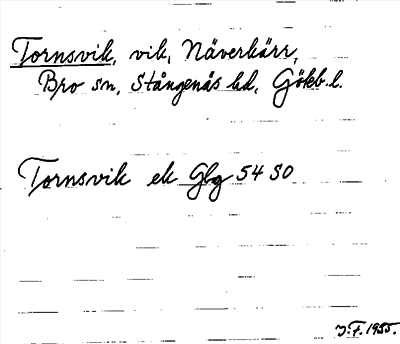 Tornsvik, vik, Näverkärr,
Bro sn, Stångenäs hd, Gökb. l.
Tornsvik ek Gbg 54 SO
J.F. 1935.